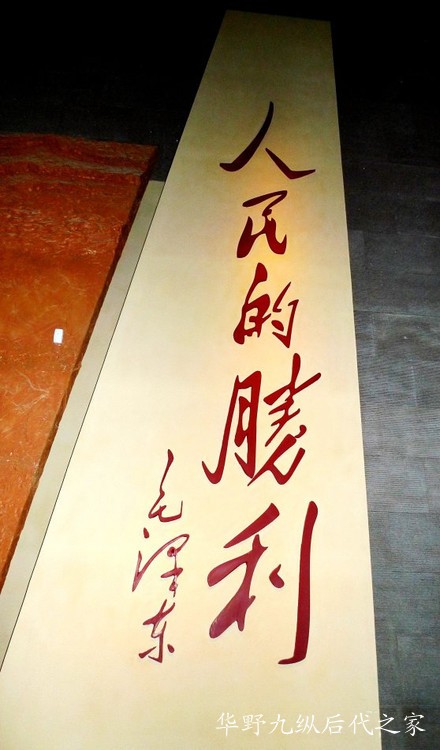 人民的勝利
毛泽东
华野九纵后代之家